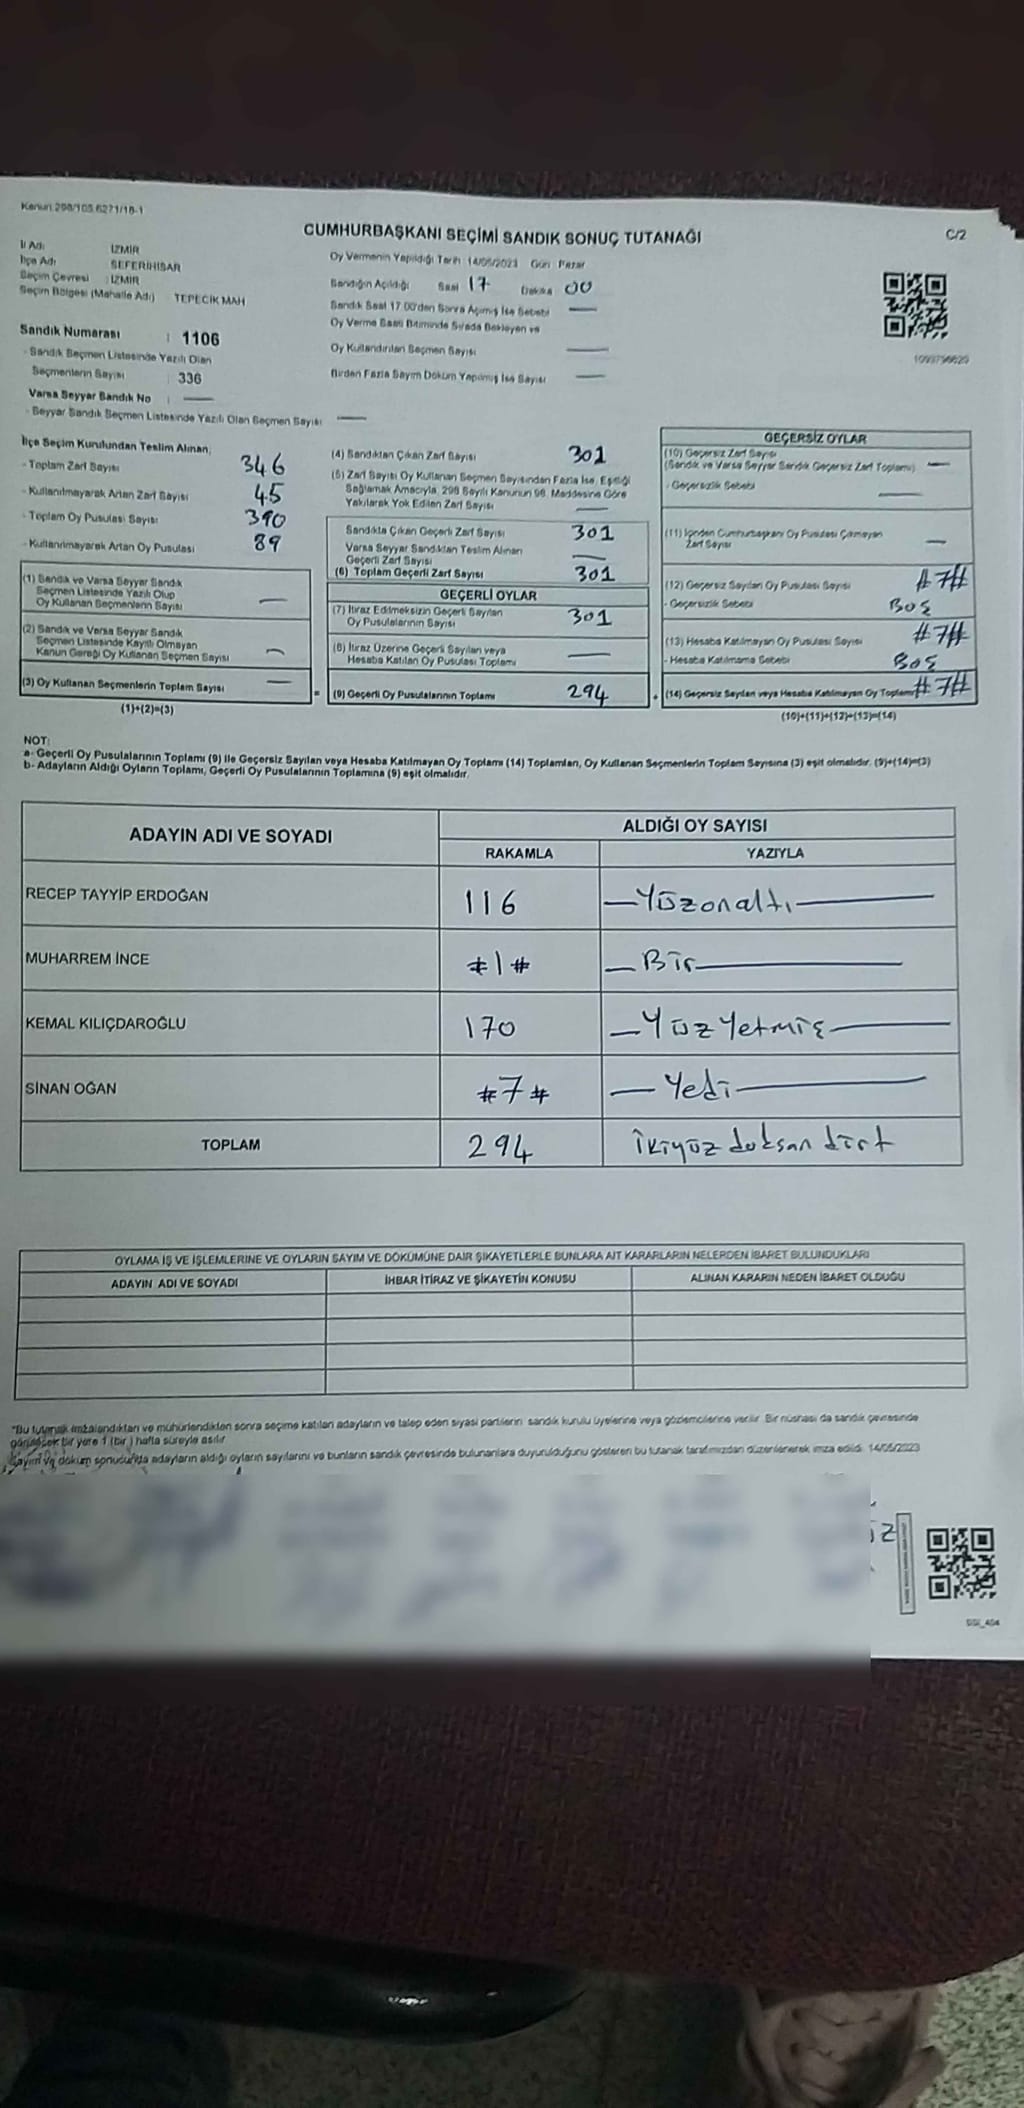 Kanun 298/105 6271/18-1
CUMHURBAŞKANI SEÇİMİ SANDIK SONUÇ TUTANAĞI
C/2
İl Adı : İZMİR
İlçe Adı : SEFERİHİSAR
Seçim Çevresi : İZMİR
Seçim Bölgesi (Mahalle Adı) TEPECİK MAH
Oy Vermenin Yapıldığı Tarih 14/05/2023 Gün : Pazar
Sandığın Açıldığı Saat 17 Dakika 00
Sandık Saat 17.00'den Sonra Açılmış İse Sebebi —
Oy Verme Saati Bitiminde Sırada Bekleyen ve
Oy Kullandırılan Seçmen Sayısı —
Birden Fazla Sayım Döküm Yapılmış İse Sayısı —
Sandık Numarası : 1106
- Sandık Seçmen Listesinde Yazılı Olan
Seçmenlerin Sayısı : 336
Varsa Seyyar Sandık No : —
- Seyyar Sandık Seçmen Listesinde Yazılı Olan Seçmen Sayısı —
İlçe Seçim Kurulundan Teslim Alınan;
- Toplam Zarf Sayısı 346
- Kullanılmayarak Artan Zarf Sayısı 45
- Toplam Oy Pusulası Sayısı 390
- Kullanılmayarak Artan Oy Pusulası 89
(1) Sandık ve Varsa Seyyar Sandık
Seçmen Listesinde Yazılı Olup
Oy Kullanan Seçmenlerin Sayısı —
(2) Sandık ve Varsa Seyyar Sandık
Seçmen Listesinde Kayıtlı Olmayan
Kanun Gereği Oy Kullanan Seçmen Sayısı —
(3) Oy Kullanan Seçmenlerin Toplam Sayısı —
(1)+(2)=(3)
(4) Sandıktan Çıkan Zarf Sayısı 301
(5) Zarf Sayısı Oy Kullanan Seçmen Sayısından Fazla İse, Eşitliği
Sağlamak Amacıyla, 298 Sayılı Kanunun 98. Maddesine Göre
Yakılarak Yok Edilen Zarf Sayısı —
Sandıkta Çıkan Geçerli Zarf Sayısı 301
Varsa Seyyar Sandıktan Teslim Alınan
Geçerli Zarf Sayısı —
(6) Toplam Geçerli Zarf Sayısı 301
GEÇERLİ OYLAR
(7) İtiraz Edilmeksizin Geçerli Sayılan
Oy Pusulalarının Sayısı 301
(8) İtiraz Üzerine Geçerli Sayılan veya
Hesaba Katılan Oy Pusulası Toplamı —
= (9) Geçerli Oy Pusulalarının Toplamı 294 +
GEÇERSİZ OYLAR
(10) Geçersiz Zarf Sayısı
(Sandık ve Varsa Seyyar Sandık Geçersiz Zarf Toplamı) —
- Geçersizlik Sebebi —
(11) İçinden Cumhurbaşkanı Oy Pusulası Çıkmayan
Zarf Sayısı —
(12) Geçersiz Sayılan Oy Pusulası Sayısı #7#
- Geçersizlik Sebebi BOŞ
(13) Hesaba Katılmayan Oy Pusulası Sayısı #7#
- Hesaba Katılmama Sebebi BOŞ
(14) Geçersiz Sayılan veya Hesaba Katılmayan Oy Toplamı #7#
(10)+(11)+(12)+(13)=(14)
NOT:
a- Geçerli Oy Pusulalarının Toplamı (9) ile Geçersiz Sayılan veya Hesaba Katılmayan Oy Toplamı (14) Toplamları, Oy Kullanan Seçmenlerin Toplam Sayısına (3) eşit olmalıdır. (9)+(14)=(3)
b- Adayların Aldığı Oyların Toplamı, Geçerli Oy Pusulalarının Toplamına (9) eşit olmalıdır.
ADAYIN ADI VE SOYADI
ALDIĞI OY SAYISI
RAKAMLA YAZIYLA
RECEP TAYYİP ERDOĞAN 116 —Yüzonaltı—
MUHARREM İNCE #1# —Bir—
KEMAL KILIÇDAROĞLU 170 —Yüzyetmiş—
SİNAN OĞAN #7# —Yedi—
TOPLAM 294 İkiyüz doksan dört
OYLAMA İŞ VE İŞLEMLERİNE VE OYLARIN SAYIM VE DÖKÜMÜNE DAİR ŞİKAYETLERLE BUNLARA AİT KARARLARIN NELERDEN İBARET BULUNDUKLARI
ADAYIN ADI VE SOYADI İHBAR İTİRAZ VE ŞİKAYETİN KONUSU ALINAN KARARIN NEDEN İBARET OLDUĞU
*Bu tutanak imzalandıktan ve mühürlendikten sonra seçime katılan adayların ve talep eden siyasi partilerin sandık kurulu üyelerine veya gözlemcilerine verilir. Bir nüshası da sandık çevresinde
görülecek bir yere 1 (bir) hafta süreyle asılır
Sayım ve döküm sonucunda adayların aldığı oyların sayılarını ve bunların sandık çevresinde bulunanlara duyurulduğunu gösteren bu tutanak tarafımızdan düzenlenerek imza edildi. 14/05/2023